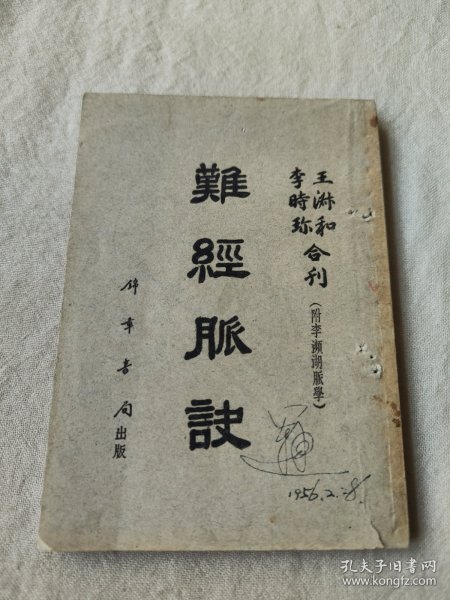 王淋和
李時珍
合刊
(附李瀕湖脈學)
難經脈訣
錦章書局出版
1956.2.28.
孔夫子旧书网
www.kongfz.com